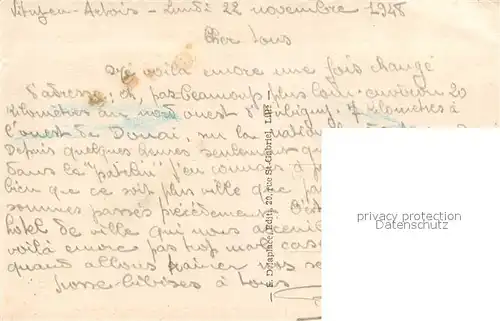 Vitry-en-Artois - Lundi 22 novembre 1948
Cher tous
voilà encore une fois changé
d'adresse, et, pas beaucoup plus loin: environ 20
kilomètres au nord ouest d'Aubigny, 7 kilomètres à
l'ouest de Douai, sur la nationale
Depuis quelques heures seulement
dans le "patelin" j'en connais à
bien que ce soit plus ville que
sommes passés précédemment. C'est
hotel de ville qui nous
voilà encore pas trop mal
quand allons
Grosse-bibises à tous
E. Delaplace, Edit. 20, rue St-Gabriel, LILLE
privacy protection
AnsichtskartenHandel.de